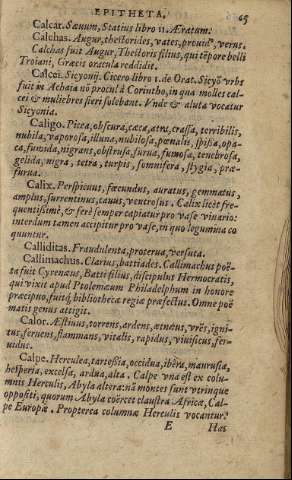 EPITHETA. 65
Calcar. Sæuum, Statius libro 11. Æratum.
Calchas. Augur, thestorides, vates, prouidꝰ, verus.
Calchas fuit Augur, Thestoris filius, qui tẽpore belli
Troiani, Græcis oracula reddidit.
Calcei. Sicyonij. Cicero libro 1. de Orat. Sicyõ vrbs
fuit in Achaia nõ procul à Corintho, in qua molles cal-
cei & muliebres fieri solebant. Vnde & aluta vocatur
Sicyonia.
Caligo. Picea, obscura, cæca, atra, crassa, terribilis,
nubila, vaporosa, illuna, nubilosa, pœnalis, spissa, opa-
ca, fumida, nigrans, obstrusa, furua, fumosa, tenebrosa,
gelida, nigra, tetra, turpis, somnifera, stygia, præ-
furua.
Calix. Perspicuus, fœcundus, auratus, gemmatus,
amplus, surrentinus, cauus, ventrosus. Calix licèt fre-
quentissimè, & ferè semper capiatur pro vase vinario:
interdum tamen accipitur pro vase, in quo legumina co
quuntur.
Calliditas. Fraudulenta, proterua, versuta.
Callimachus. Clarius, battiades. Callimachus poë-
ta fuit Cyrenæus, Batti filius, discipulus Hermocratis,
qui vixit apud Ptolemæum Philadelphum in honore
præcipuo, fuitq́; bibliothecæ regiæ præfectus. Omne poë
matis genus attigit.
Calor. Æstiuus, torrens, ardens, ætnæus, vrẽs, igni-
tus, feruens, flammans, vitalis, rapidus, viuificus, fer-
uidus.
Calpe. Herculea, tartessia, occidua, ibera, maurusia,
hesperia, excelsa, ardua, alta. Calpe vna est ex colu-
mnis Herculis, Abyla altera: nã montes sunt vtrinque
oppositi, quorum Abyla coërcet claustra Africæ, Cal-
pe Europæ. Propterea columnæ Herculis vocantur.
E Hæc